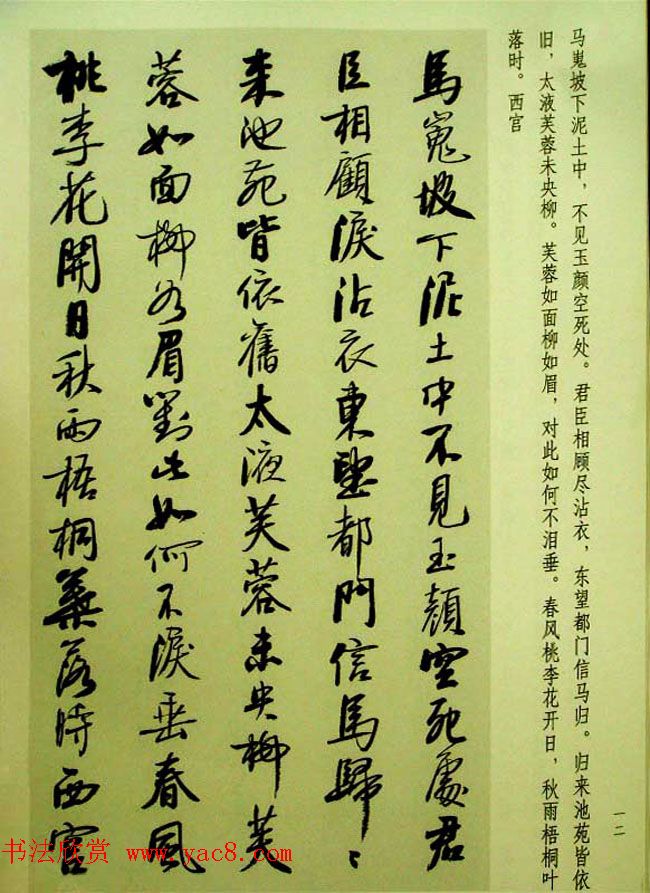 马嵬坡下泥土中，不见玉颜空死处。君臣相顾尽沾衣，东望都门信马归。归来池苑皆依
旧，太液芙蓉未央柳。芙蓉如面柳如眉，对此如何不泪垂。春风桃李花开日，秋雨梧桐叶
落时。西宫
馬嵬坡下泥土中不見玉顏空死處君
臣相顧淚沾衣東望都門信馬歸〻
来池苑皆依舊太液芙蓉未央柳芙
蓉如面柳如眉對此如何不淚垂春風
桃李花開日秋雨梧桐葉落時西宮
一二
书法欣赏 www.yac8.com